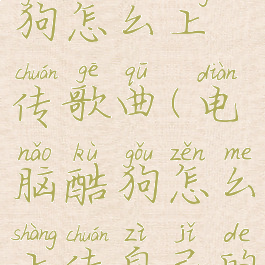 狗怎么上
chuán gē qū diàn
传歌曲(电
nǎo kù gǒu zěn me
脑酷狗怎么
shàng chuán zì jǐ de
上传自己的